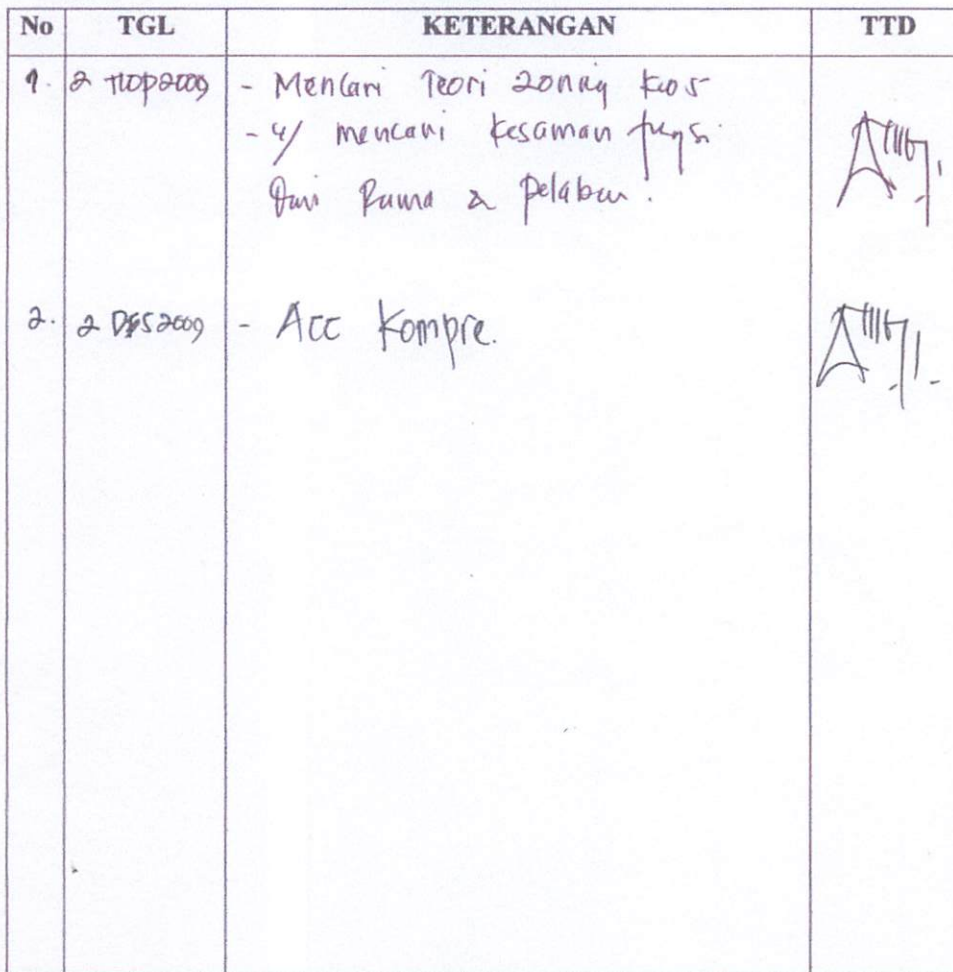 No TGL KETERANGAN TTD
1. 2 2009 - Mencari Teori zoning
- u/ mencari kesaman fungsi
Dari & pelabuan.
2. 2 DES 2009 - Acc Kompre.